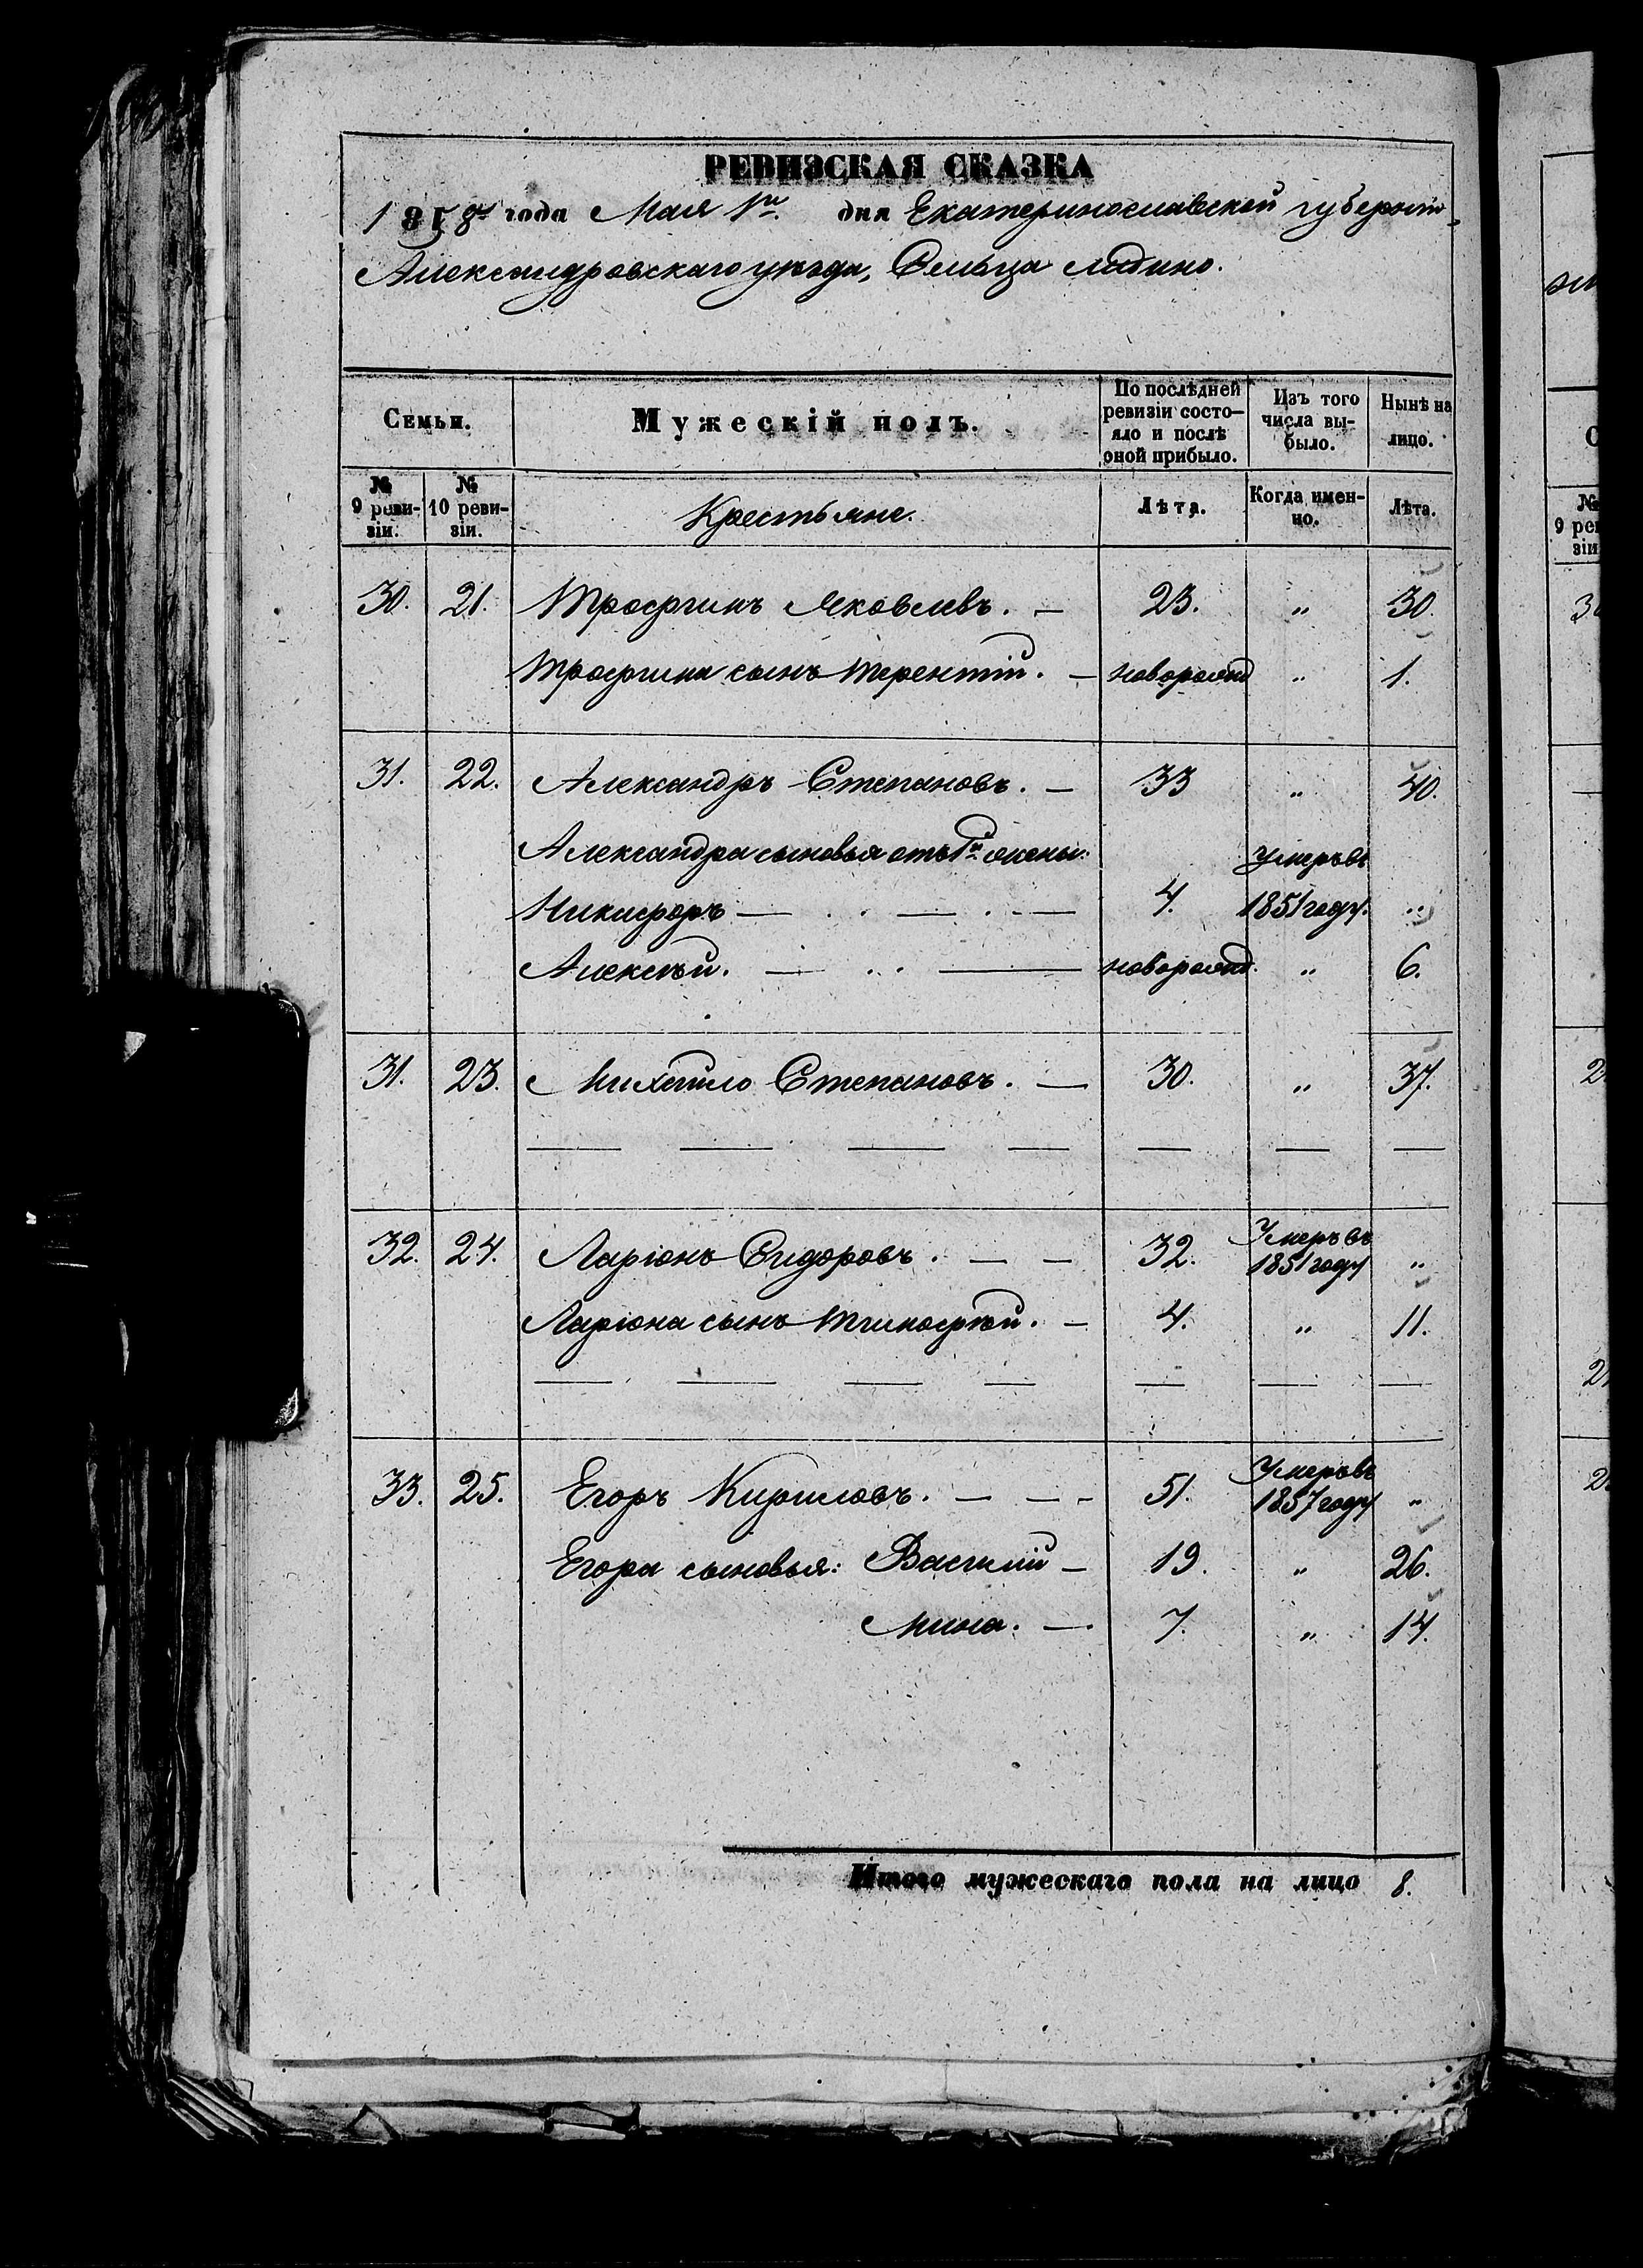 РЕВИЗСКАЯ СКАЗКА
1858 года Мая 1го дня Екатеринославской губернiи
Александровскаго уѣзда, Сельца
Семьи.
Мужескiй полъ.
По послѣдней ревизiи состо-
яло и послѣ
оной прибыло.
Изъ того
числа вы-
было.
Нынѣ на
лицо.
№ 9 реви-
зiи.
№ 10 реви-
зiи.
Крестьяне.
Лѣта.
Когда имен-
но.
Лѣта.
30. 21. Трофимъ Яковлевъ. — 23. „ 30.
Трофима сынъ Терентiй. — новорожд „ 1.
31. 22. Александръ Степановъ. — 33 „ 40.
Александра сыновья отъ 1й жены:
Никифоръ — 4. Умеръ въ 1851 году. „
Алексѣй. — новорожд. „ 6.
31. 23. Михайло Степановъ. — 30. „ 37.
32. 24. Ларiонъ Сидоровъ. — — 32. Умеръ въ 1851 году „
Ларiона сынъ Тимофѣй. — 4. „ 11.
33. 25. Егоръ Кириловъ. — — - 51. Умеръ въ 1857 году „
Егора сыновья: Василiй — 19. „ 26.
Мина. — 7. „ 14.
Итого мужескаго пола на лицо 8.